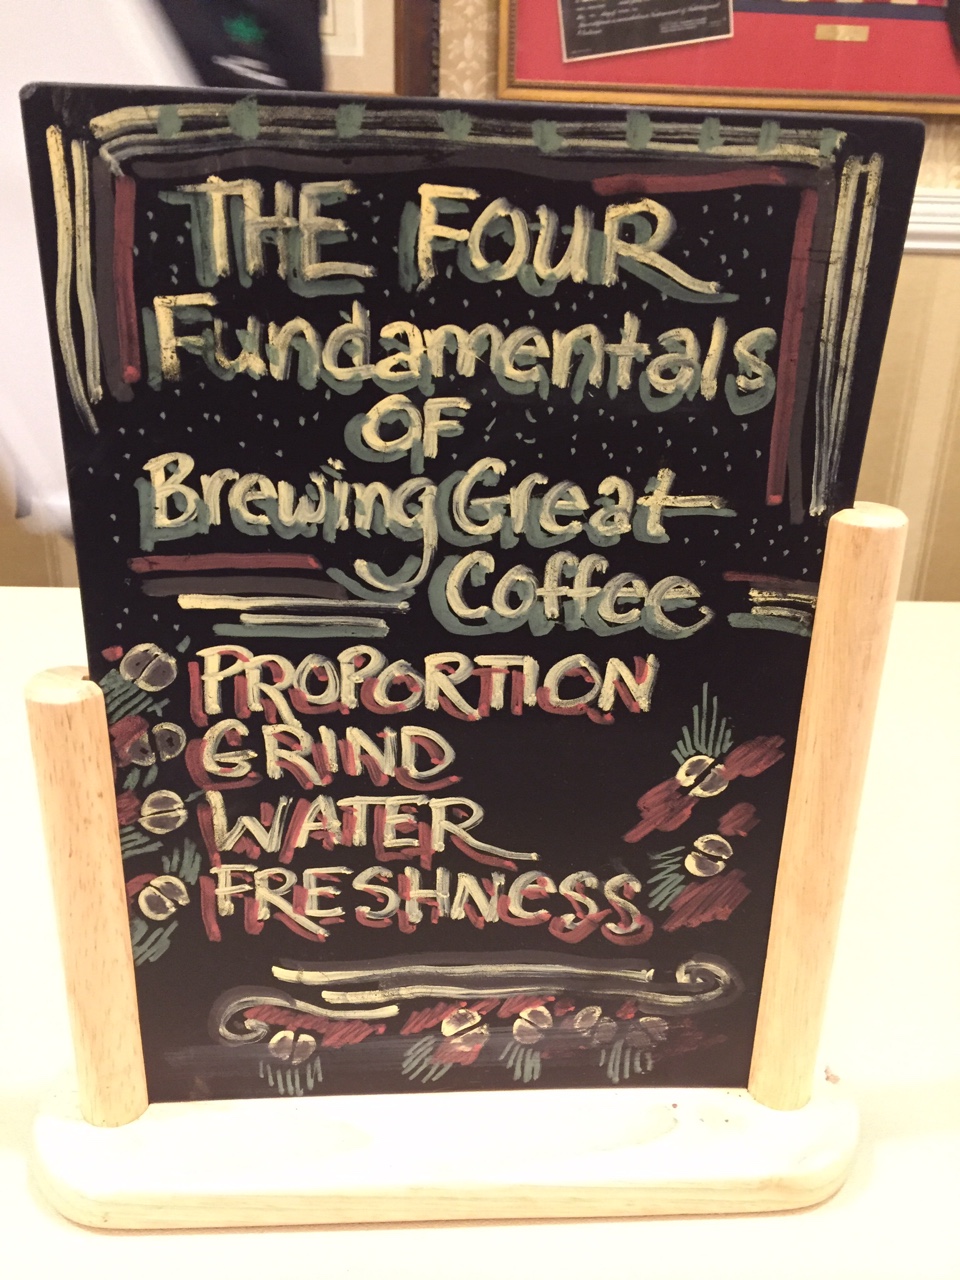 THE FOUR
Fundamentals
OF
Brewing Great
Coffee
PROPORTION
GRIND
WATER
FRESHNESS